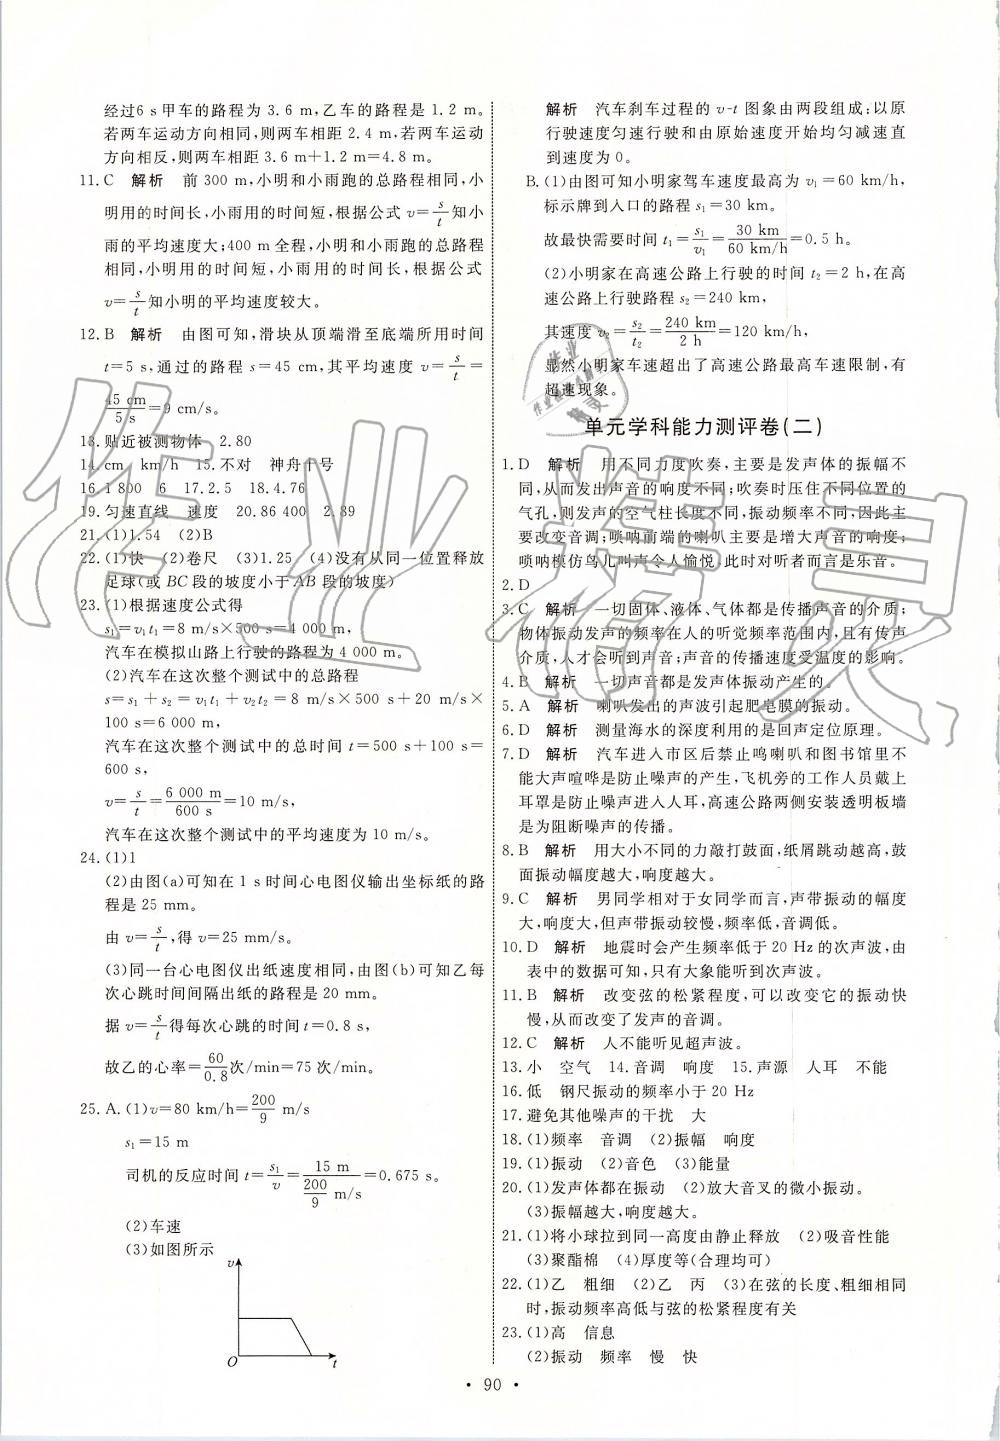 经过6 s甲车的路程为3.6 m,乙车的路程是1.2 m。
若两车运动方向相同,则两车距2.4 m,若两车运动
方向相反,则两车距3.6 m+1.2 m=4.8 m。
11.C 解析 前300 m,小明和小雨跑的总路程相同,小
明用的时间长,小雨用的时间短,根据公式 v=s/t 知小
雨的平均速度大;400 m全程,小明和小雨跑的总路程
相同,小明用的时间短,小雨用的时间长,根据公式
v=s/t 知小明的平均速度较大。
12.B 解析 由图可知,滑块从顶端滑至底端所用时间
t=5 s,通过的路程 s=45 cm,其平均速度 v=s/t=
45 cm/5 s=9 cm/s。
13.贴近被测物体 2.80
14.cm km/h 15.不对 神舟十号
16.1 800 6 17.2.5 18.4.76
19.匀速直线 速度 20.86 400 2.89
21.(1)1.54 (2)B
22.(1)快 (2)卷尺 (3)1.25 (4)没有从同一位置释放
足球(或BC段的坡度小于AB段的坡度)
23.(1)根据速度公式得
s₁=v₁t₁=8 m/s×500 s=4 000 m,
汽车在模拟山路上行驶的路程为4 000 m。
(2)汽车在这次整个测试中的总路程
s=s₁+s₂=v₁t₁+v₂t₂=8 m/s×500 s+20 m/s×
100 s=6 000 m,
汽车在这次整个测试中的总时间 t=500 s+100 s=
600 s,
v=s/t=6 000 m/600 s=10 m/s,
汽车在这次整个测试中的平均速度为10 m/s。
24.(1)1
(2)由图(a)可知在1 s时间心电图仪输出坐标纸的路
程是25 mm。
由 v=s/t,得 v=25 mm/s。
(3)同一台心电图仪出纸速度相同,由图(b)可知乙每
次心跳时间间隔出纸的路程是20 mm。
据 v=s/t 得每次心跳的时间 t=0.8 s,
故乙的心率=60/0.8次/min=75次/min。
25.A.(1)v=80 km/h=200/9 m/s
s₁=15 m
司机的反应时间 t=s₁/v=15 m/(200/9 m/s)=0.675 s。
(2)车速
(3)如图所示
v
O
t
解析 汽车刹车过程的 v-t 图象由两段组成;以原
行驶速度匀速行驶和由原始速度开始均匀减速直
到速度为0。
B.(1)由图可知小明家驾车速度最高为 v₁=60 km/h,
标示牌到入口的路程 s₁=30 km。
故最快需要时间 t₁=s₁/v₁=30 km/60 km/h=0.5 h。
(2)小明家在高速公路上行驶的时间 t₂=2 h,在高
速公路上行驶路程 s₂=240 km,
其速度 v₂=s₂/t₂=240 km/2 h=120 km/h,
显然小明家车速超出了高速公路最高车速限制,有
超速现象。
单元学科能力测评卷(二)
1.D 解析 用不同力度吹奏,主要是发声体的振幅不
同,从而发出声音的响度不同;吹奏时压住不同位置的
气孔,则发声的空气柱长度不同,振动频率不同,因此主
要改变音调;唢呐前端的喇叭主要是增大声音的响度;
唢呐模仿鸟儿叫声令人愉悦,此时对听者而言是乐音。
2.D
3.C 解析 一切固体、液体、气体都是传播声音的介质;
物体振动发声的频率在人的听觉频率范围内,且有传声
介质,人才会听到声音;声音的传播速度受温度的影响。
4.B 解析 一切声音都是发声体振动产生的。
5.A 解析 喇叭发出的声波引起肥皂膜的振动。
6.D 解析 测量海水的深度利用的是回声定位原理。
7.D 解析 汽车进入市区后禁止鸣喇叭和图书馆里不
能大声喧哗是防止噪声的产生,飞机旁的工作人员戴上
耳罩是防止噪声进入人耳,高速公路两侧安装透明板墙
是为阻断噪声的传播。
8.B 解析 用大小不同的力敲打鼓面,纸屑跳动越高,鼓
面振动幅度越大,响度越大。
9.C 解析 男同学相对于女同学而言,声带振动的幅度
大,响度大,但声带振动较慢,频率低,音调低。
10.D 解析 地震时会产生频率低于20 Hz的次声波,由
表中的数据可知,只有大象能听到次声波。
11.B 解析 改变弦的松紧程度,可以改变它的振动快
慢,从而改变了发声的音调。
12.C 解析 人不能听见超声波。
13.小 空气 14.音调 响度 15.声源 人耳 不能
16.低 钢尺振动的频率小于20 Hz
17.避免其他噪声的干扰 大
18.(1)频率 音调 (2)振幅 响度
19.(1)振动 (2)音色 (3)能量
20.(1)发声体都在振动 (2)放大音叉的微小振动。
(3)振幅越大,响度越大。
21.(1)将小球拉到同一高度由静止释放 (2)吸音性能
(3)聚酯棉 (4)厚度等(合理均可)
22.(1)乙 粗细 (2)乙 丙 (3)在弦的长度、粗细相同
时,振动频率高低与弦的松紧程度有关
23.(1)高 信息
(2)振动 频率 慢 快
• 90 •
作业精灵